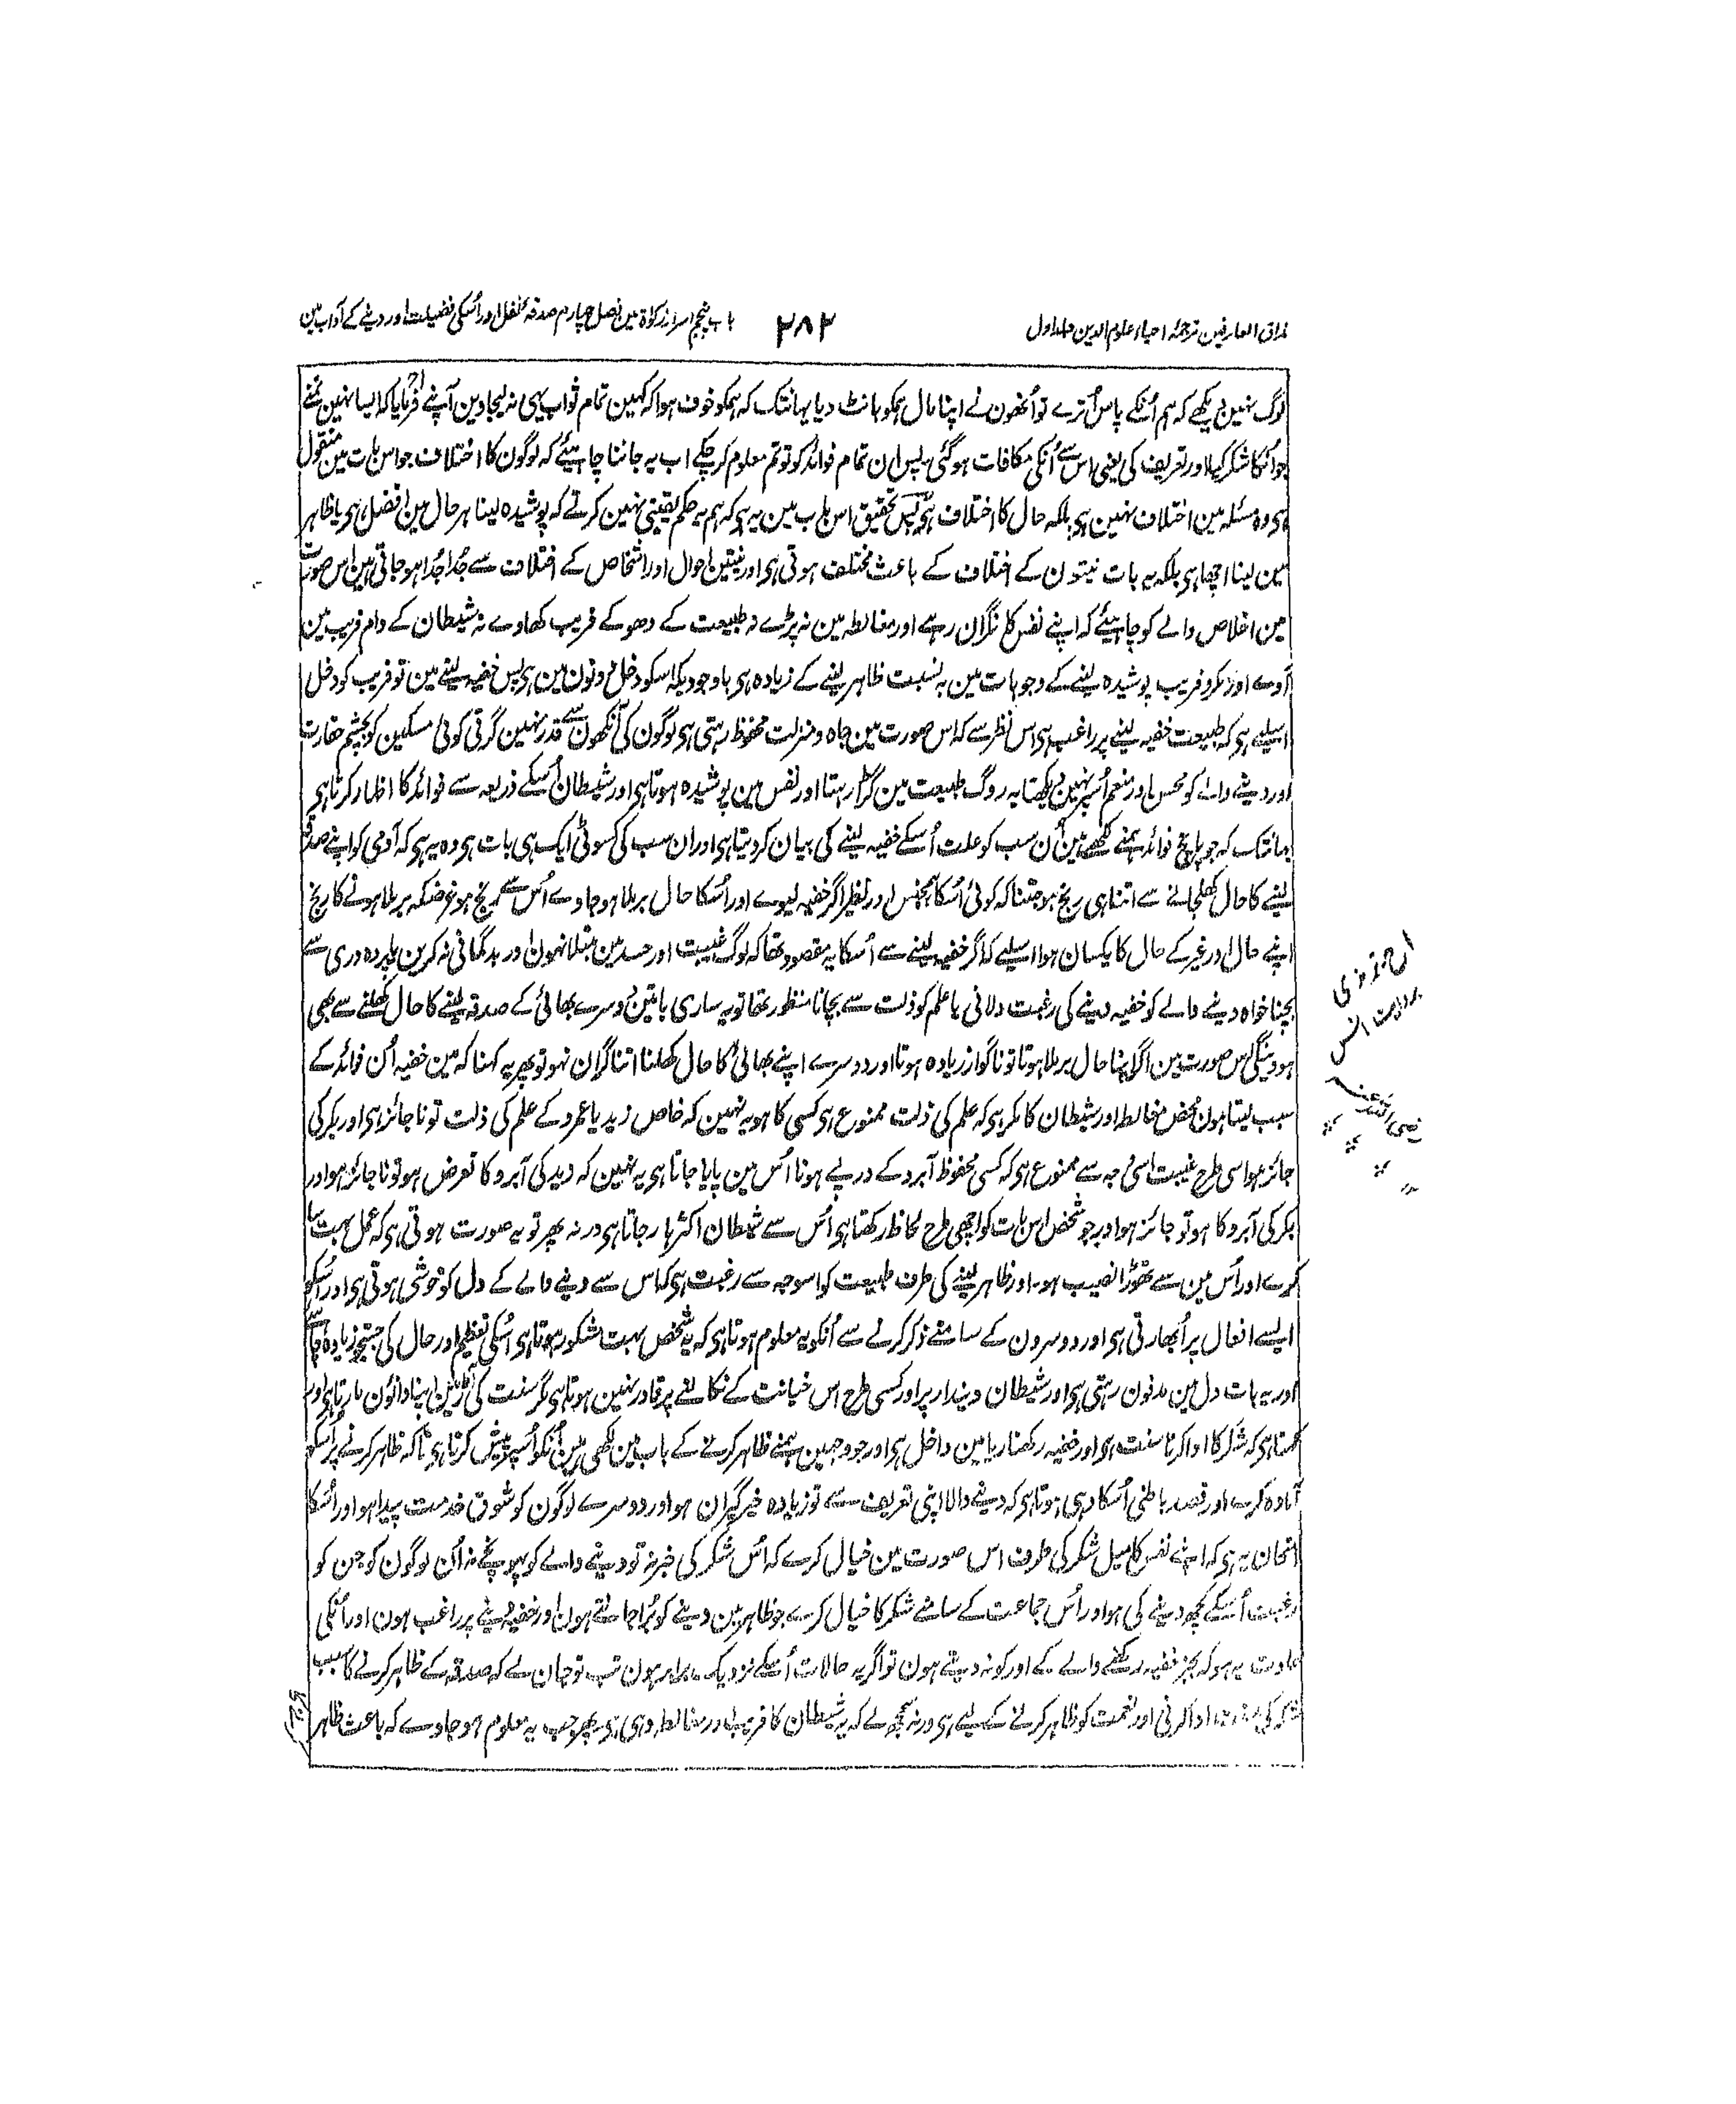 مذاق العارفین ترجمۂ احیاء علوم الدین جلد اول
۲۸۲
باب پنجم اسرار زکوٰۃ مین فصل چہارم صدقہ نفل اور اُسکی فضیلت اور دینے کے آداب مین
لوگ نہین دیکھے کہ ہم اُنکے پاس اُترے تو اُنھون نے اپنا مال ہمکو بانٹ دیا یہانتک کہ ہمکو خوف ہوا کہ کہین تمام ثواب یہی نہ لیجاوین آپنے فرمایا کہ ایسا نہین تمنے
جو اُنکا شکر کیا اور تعریف کی یعنی اس سے اُنکی مکافات ہو گئی پس ان تمام فوائد کو تو تم معلوم کر چکے اب یہ جاننا چاہیئے کہ لوگون کا اختلاف جو اس بات مین منقول
ہی وہ مسئلہ مین اختلاف نہین ہی بلکہ حال کا اختلاف ہی پس تحقیق اس باب مین یہ ہی کہ ہم یہ حکم یقینی نہین کرتے کہ پوشیدہ لینا ہر حال مین افضل ہی یا ظاہر
مین لینا اچھا ہی بلکہ یہ بات نیتون کے اختلاف کے باعث مختلف ہوتی ہی اور نیتین احوال اور اشخاص کے اختلاف سے جُدا جُدا ہو جاتی ہین اس صورت
مین اخلاص والے کو چاہیئے کہ اپنے نفس کا نگران رہے اور مغالطہ مین نہ پڑے نہ طبیعت کے دھوکے فریب کھاوے نہ شیطان کے دام فریب مین
آوے اور مکر و فریب پوشیدہ لینے کے وجوہات مین بہ نسبت ظاہر لینے کے زیادہ ہی باوجودیکہ اسکو دخل دونون مین ہی پس خفیہ لینے مین تو فریب کو دخل
اسلیے ہی کہ طبیعت خفیہ لینے پر راغب ہی اس نظر سے کہ اس صورت مین جاہ و منزلت محفوظ رہتی ہی لوگون کی آنکھون سے قدر نہین گرتی کوئی مسکین کو بچشم حقارت
اور دینے والے کو محسن اور منعم اُسپر نہین دیکھتا یہ روگ طبیعت مین گڑا رہتا اور نفس مین پوشیدہ ہوتا ہی اور شیطان اُسکے ذریعہ سے فوائد کا اظہار کرتا ہی
یہانتک کہ جو پانچ فوائد ہمنے لکھے ہین اُن سب کو علت اُسکے خفیہ لینے کی بیان کر دیتا ہی اور ان سب کی کسوٹی ایک ہی بات ہی وہ یہ ہی کہ آدمی کو اپنے صدقہ
لینے کا حال کھلجانے سے اتنا ہی رنج ہو جتنا کہ کوئی اُسکا ہمجنس اور نظیر اگر خفیہ لیوے اور اُسکا حال برملا ہو جاوے اُس سے رنج ہو غرضکہ برملا ہونے کا رنج
اپنے حال اور غیر کے حال کا یکسان ہوا اسلیے کہ اگر خفیہ لینے سے اُسکا یہ مقصود تھا کہ لوگ غیبت اور حسد مین مبتلا نہون اور بدگمانی نہ کرین یا پردہ دری سے
بچنا خواہ دینے والے کو خفیہ دینے کی رغبت دلانی یا علم کو ذلت سے بچانا منظور تھا تو یہ ساری باتین دوسرے بھائی کے صدقہ لینے کا حال کھلنے سے بھی
ہو وینگی اس صورت مین اگر اپنا حال برملا ہوتا تو ناگوار زیادہ ہوتا اور دوسرے اپنے بھائی کا حال کھلنا اتنا گران نہو تو پھر یہ کہنا کہ مین خفیہ اُن فوائد کے
سبب لیتا ہون محض مغالطہ اور شیطان کا مکر ہی کہ علم کی ذلت ممنوع ہی کسی کا ہو یہ نہین کہ خاص زید یا عمرو کے علم کی ذلت تو ناجائز ہی اور بکر کی
جائز ہو اسی طرح غیبت اسی وجہ سے ممنوع ہی کہ کسی محفوظ آبرو کے درپے ہونا اُس مین پایا جاتا ہی یہ نہین کہ زید کی آبرو کا تعرض ہو تو ناجائز ہو اور
بکر کی آبرو کا ہو تو جائز ہو اور جو شخص اس بات کو اچھی طرح لحاظ رکھتا ہی اُس سے شیطان اکثر ہار جاتا ہی ورنہ پھر تو یہ صورت ہوتی ہی کہ عمل بہت سا
کرے اور اُس مین سے تھوڑا نصیب ہو اور ظاہر لینے کی طرف طبیعت کو اسوجہ سے رغبت ہی کہ اس سے دینے والے کے دل کو خوشی ہوتی ہی اور اُسکو
ایسے افعال پر اُبھارتی ہی اور دوسرون کے سامنے ذکر کرنے سے اُنکو یہ معلوم ہوتا ہی کہ یہ شخص بہت مشکور ہوتا ہی اُسکی تعظیم اور حال کی جستجو زیادہ چاہیے
اور یہ بات دل مین مدفون رہتی ہی اور شیطان دیندار پر اور کسی طرح اس خیانت کے نکالنے پر قادر نہین ہوتا ہی مگر سنت کی آڑ مین اپنا دانؤن مارتا ہی اور
کہتا ہی کہ شکر کا ادا کرنا سنت ہی اور خفیہ رکھنا ریا مین داخل ہی اور جو وجہین ہمنے ظاہر کرنے کے باب مین لکھی ہین اُنکو اُسپر پیش کرتا ہی تاکہ ظاہر کرنے پر اُسکو
آمادہ کرے اور قصد باطنی اُسکا وہی ہوتا ہی کہ دینے والا اپنی تعریف سے تو زیادہ خبر گیران ہو اور دوسرے لوگون کو شوق خدمت پیدا ہو اور اُسکا
امتحان یہ ہی کہ اپنے نفس کا میل شکر کی طرف اس صورت مین خیال کرے کہ اُس شکر کی خبر نہ تو دینے والے کو پہونچے نہ اُن لوگون کو جن کو
رغبت اُسکے کچھ دینے کی ہو اور اُس جماعت کے سامنے شکر کا خیال کرے جو ظاہر مین دینے کو بُرا جانتے ہون اور خفیہ دینے پر راغب ہون اور اُنکی
عادت یہ ہو کہ بجز خفیہ رکھنے والے کے اور کو نہ دیتے ہون تو اگر یہ حالات اُسکے نزدیک برابر ہون تب تو جان لے کہ صدقہ کے ظاہر کرنے کا سبب
شکر کی سنت ادا کرنی اور نعمت کو ظاہر کرنے کے لیے ہی ورنہ سمجھ لے کہ یہ شیطان کا فریب اور مغالطہ وہی ہی پھر جب یہ معلوم ہو جاوے کہ باعث ظاہر
ترمذی
بروایت انس
رضی اللہ عنہ